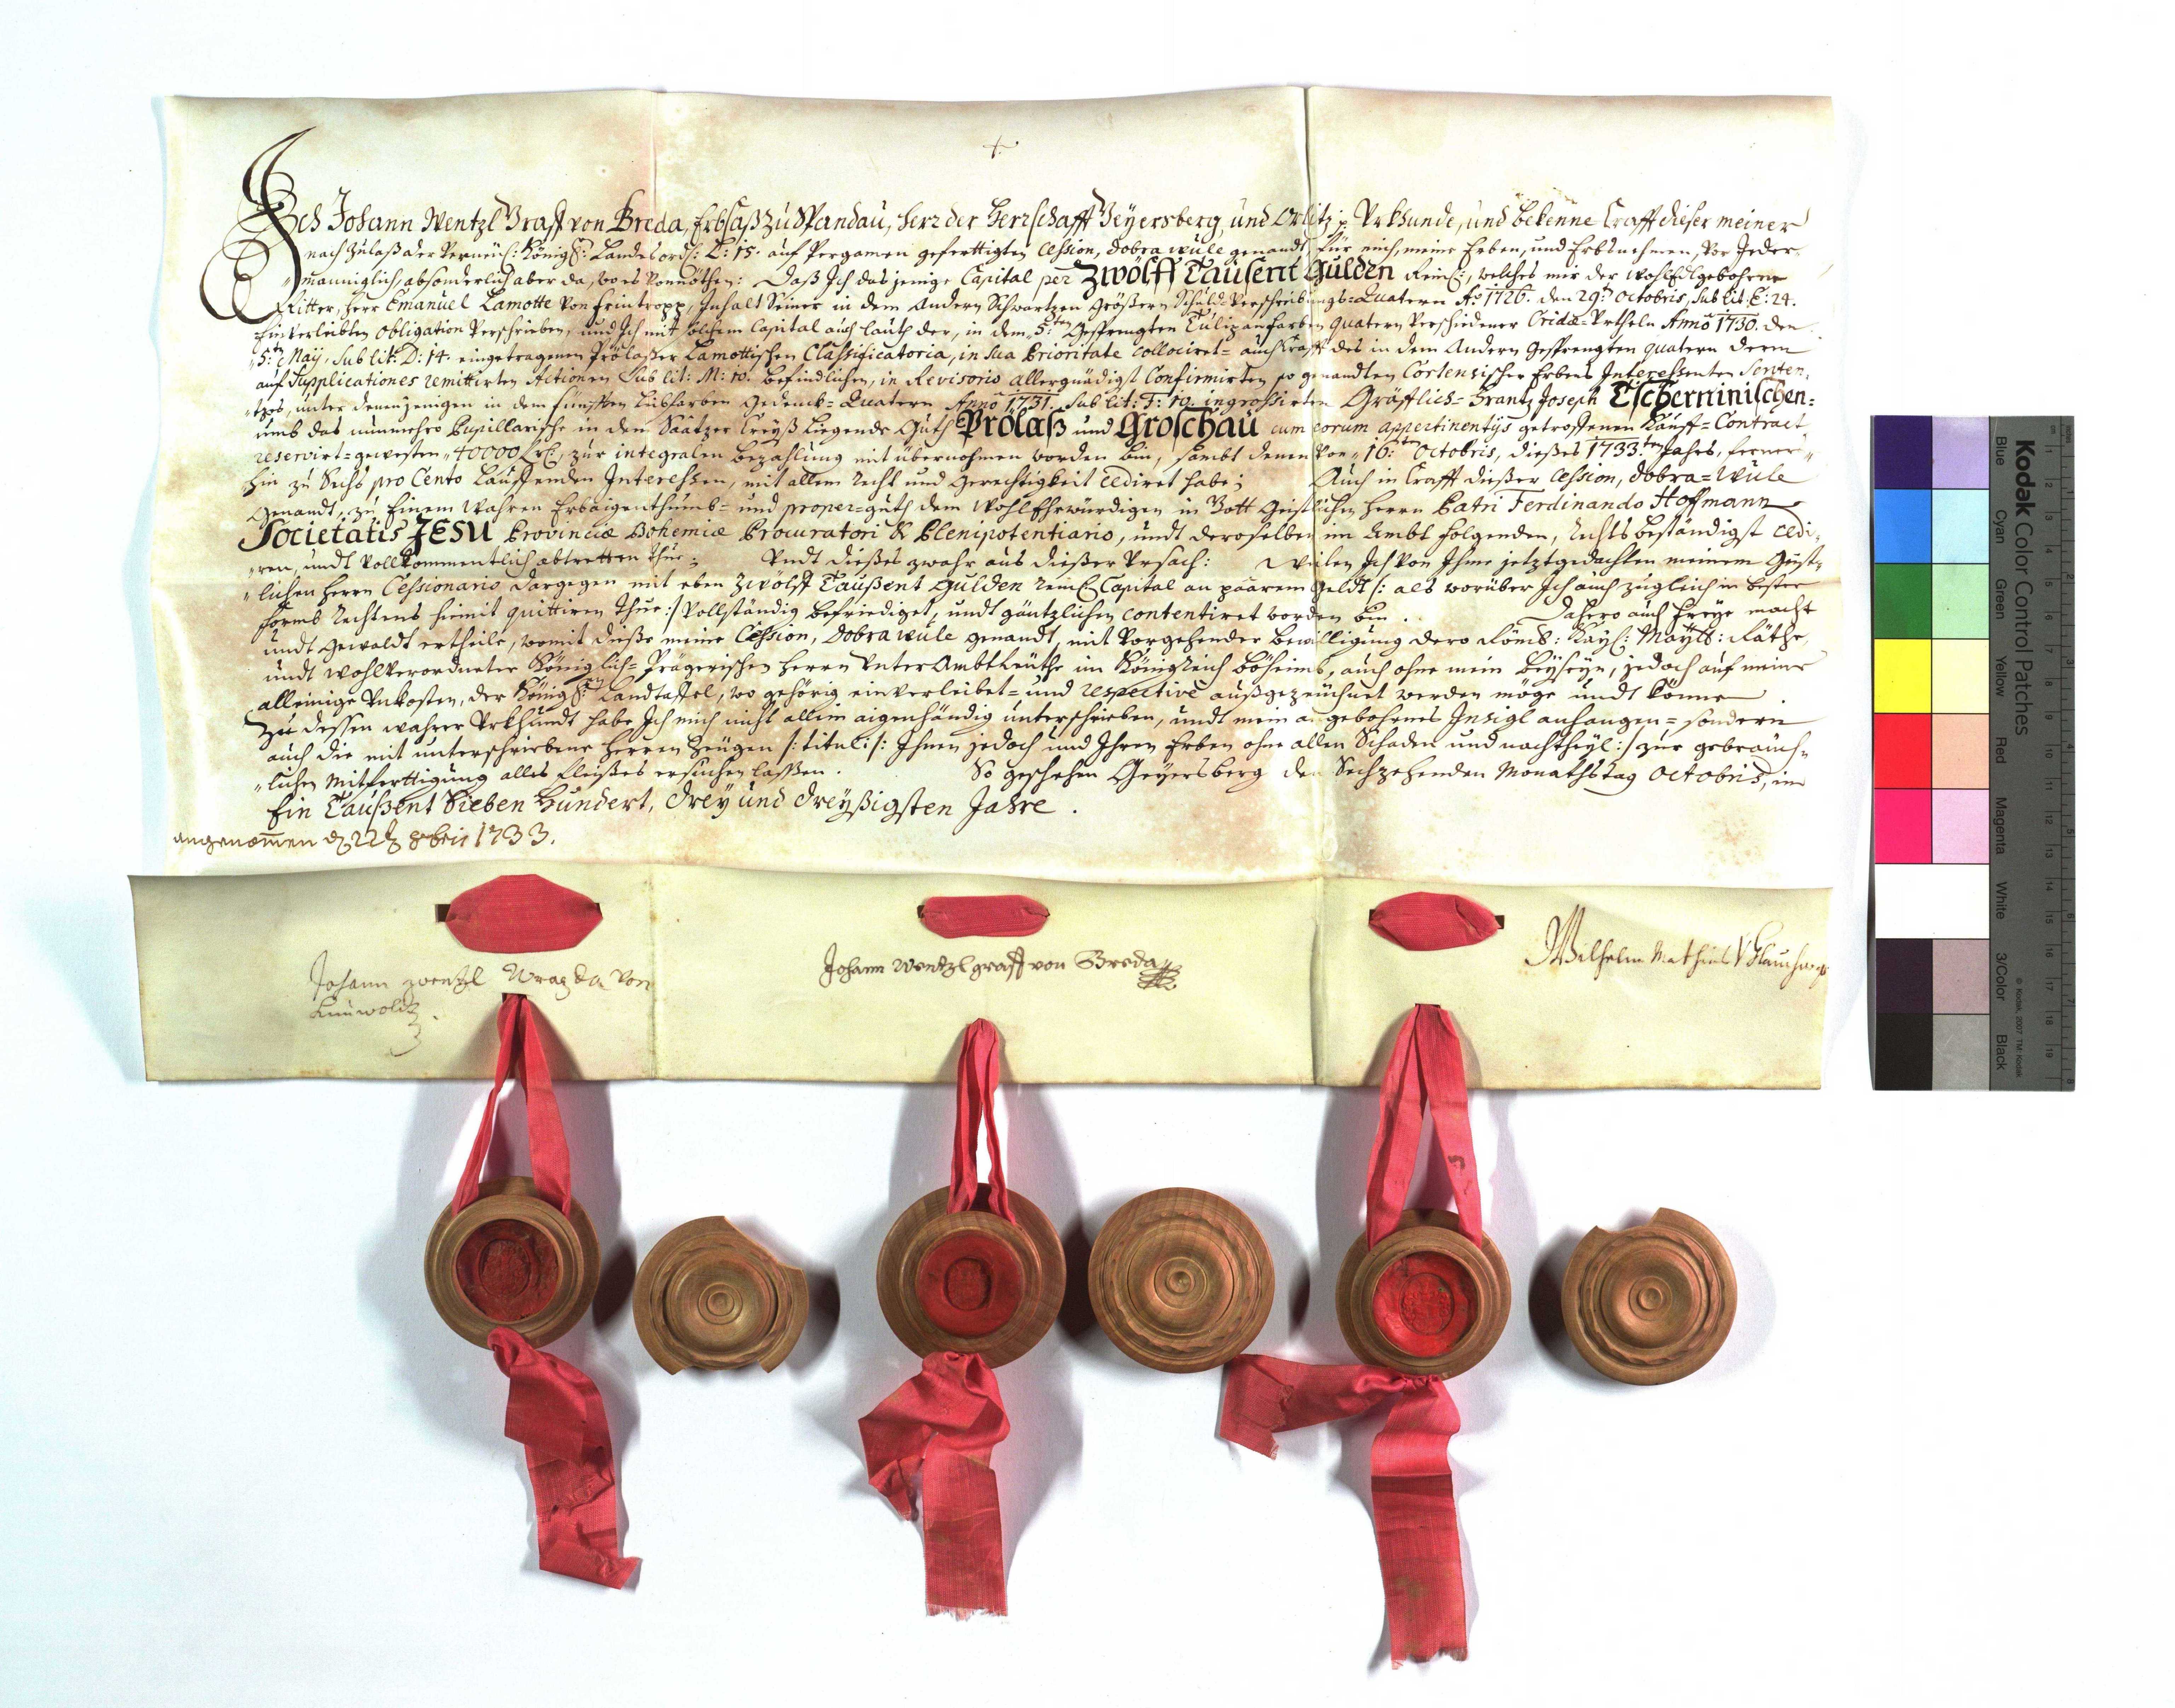 +
Ich Johann Wentzl Graff von Breda, Erbsaß zu Spandau, Herr der Herrschafft Geyersberg, und Orlitz; Urkhunde, und bekenne Crafft dieser meiner
nach zulaß der Verneu: Königl: Landesord: L: 15. auf Pergamen gefertigten Cession, dobra wule genandt, für mich, meine Erben, und Erbnehmen, vor Jeder-
männiglich, absonderlich aber da, wo es vonnöthen: Daß Ich das jenige Capital per Zwölff Tausent Gulden Rein:, welches mir der WohlEdlgebohrne
Ritter, Herr Emanuel Lamotte von Frintropp, Inhalt Seiner in dem Andern Schwartzen Größern Schuld-Verschreibungs-Quatern Aõ 1726. den 29t Octobris, Sub lit: E: 24.
Einverleibten Obligation verschrieben, und Ich mit solchem Capital auch lauth der, in dem 5ten Gesprengten Tulipanfarben Quatern verschiedener Cridæ-Urtheln Anno 1730. den
5ten May, Sub lit: D: 14. eingetragenen Prölaßer Lamottischen Classificatoria, in sua Prioritate collociret- auch Crafft des in dem Andern Gesprengten quatern deren
auf Supplicationes remittirten Actionen Sub lit: M: 10. befindlichen, in Revisorio allergnädigst Confirmirten so genandten Erbens Interessenten Senten-
tzes, unter denenjenigen in dem fünfften Liebfarben Gedenck-Quatern Anno 1731. Sub lit: F: 19. ingrossirten Gräfflich-Frantz Joseph Tscherninischen-
umb das nunmehro Pupillarische in dem Saatzer Creyß liegende Guth Prölaß und Groschau cum eorum appertinentijs getroffenen Kauff-Contract
reservirt-gewesten 40000 zur integralen bezahlung mit übernohmen worden bin, sambt denen von 16ten Octobris, dießes 1733ten Jahrs, ferner-
hin zu Sechs pro Cento lauffenden Interessen, mit allem Recht und Gerechtigkeit cediret habe; Auch in Crafft dießer Cession, dobra-wule
genandt, zu Einem wahren Erbaigenthumb- und proper-guth dem WohlEhrwürdigen in Gott Geistlichen Herrn Patri Ferdinando Hoffmann
Societatis JESU Provinciæ Bohemiæ Procuratori & Plenipotentiario, undt deroselben im Ambt folgenden, Rechts beständigst cedi-
ren, undt vollkommentlich abtretten thue; Undt dießes zwahr aus dießer Ursach: Weilen Ich von Ihme jetztgedachten meinem Geist-
lichen Herrn Cessionario dargegen mit eben Zwölff Taußent Gulden Rein: Capital an paarem Geldt /: als worüber Ich auch zugleich in bester
Forms Rechtens hiemit quittiren thue :/ vollständig befriediget, undt gäntzlichen contentiret worden bin. Dahero auch Freye macht
undt gewaldt ertheile, womit dieße meine Cession, Dobra wule genandt, mit vorgehender bewilligung dero Röm: Kay: Mayt: Räthe,
undt wohlverordneter Königlich-Prägerischen Herrn UnterAmbtleuthe im Königreich Böheimb, auch ohne mein beyseyn, jedoch auf meine
alleinige Unkosten, der Königl: Landtaffel, wo gehörig einverleibet- und respectivè außgezeichnet werden möge undt könne.
Zu dessen wahrer Urkhundt habe Ich mich nicht allein aigenhändig unterschrieben, undt mein angebohrnes Insigl anhangen- sondern
auch die mit unterschriebene Herren Zeugen /: titul: /: Ihnen jedoch und Ihren Erben ohne allen Schaden und nachtheyl :/ zur gebräuch-
lichen mitfertigung alles fleißes ersuchen lassen. So geschehen Geyersberg den Sechzehenden Monathstag Octobris, im
Ein Taußent Sieben Hundert, drey und dreyßigsten Jahre.
angenommen den 22 8bris 1733.
Johann wentzl Wrazda von
Kunwoldt.
Johann Wentzl graff von Breda
Wilhelm Mathias
Kodak Color Control Patches
Blue Cyan Green Yellow Red Magenta White 3/Color Black
© Kodak, 2007 TM: Kodak